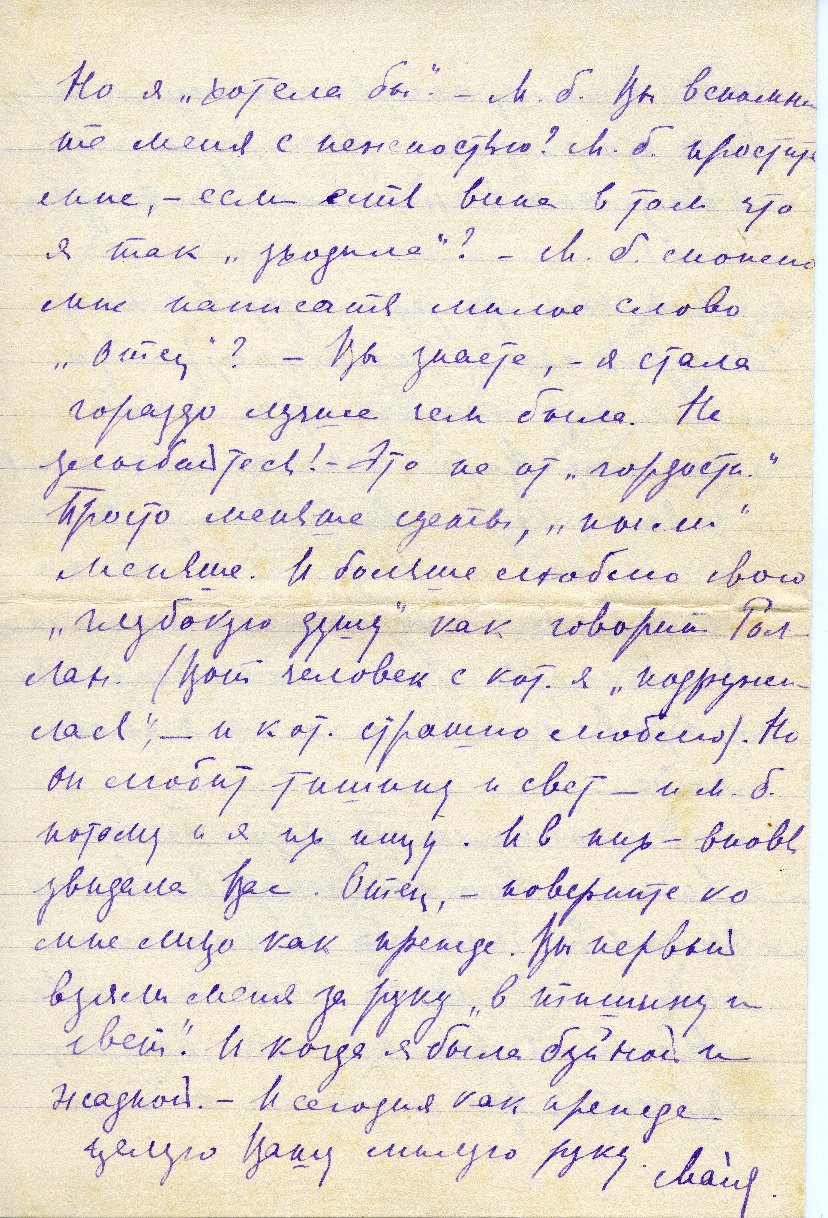 Но я „хотела бы“. – М. б. Вы вспомни
те меня с нежностью? М. б. простите
мне, – если есть вина в том что
я так „уходила“? – М. б. сможете
мне написать милое слово
„Отец“? – Вы знаете, – я стала
гораздо лучше чем была. Не
улыбайтесь! – Это не от „гордости.“
Просто меньше суеты, „пыли“
меньше. И больше люблю свою
„глубокую душу“ как говорит Рол-
лан. (Вот человек с кот. я „подружи-
лась“, – и кот. страшно люблю). Но
он любит тишину и свет – и м. б.
потому и я их ищу. И в них – вновь
увидала Вас. Отец, – поверните ко
мне лицо как прежде. Вы первый
взяли меня за руку „в тишину и
свет“. И когда я была буйной и
жадной. – И сегодня как прежде
целую Вашу милую руку.
Майя.